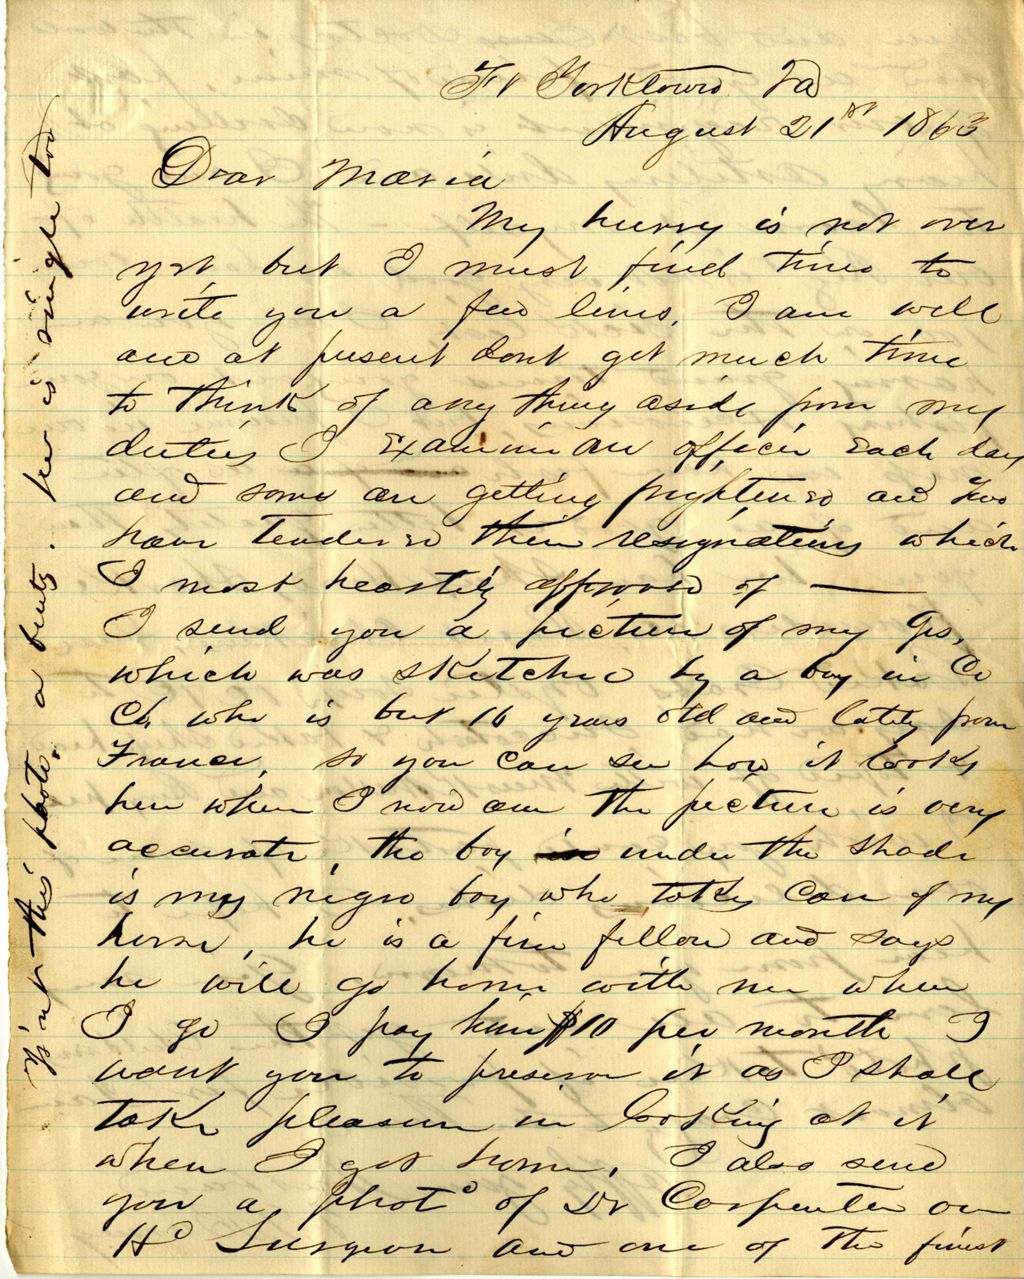 Ft Yorktown Va
August 21st 1863
Dear Maria
My hurry is not over
yet, but I must find time to
write you a few lines. I am well
and at present dont get much time
to think of any thing aside from my
duties I examin an officer each day
and some are getting frightened and two
have tendered their resignations which
I most heartily approved of —
I send you a picture of my
which was sketched by a boy in Co
who is but 16 years old and lately from
France, so you can see how it looks
here where I now am the picture is very
accurate, the boy in under the shade
is my negro boy who takes care of my
horse, he is a fine fellow and says
he will go home with me when
I go I pay him $10 per month I
want you to preserve it as I shall
take pleasure in looking at it
when I get home. I also send
you a photo of Dr Carpenter our
Hd Surgeon and one of the finest
this photo. a beauty. he is single too